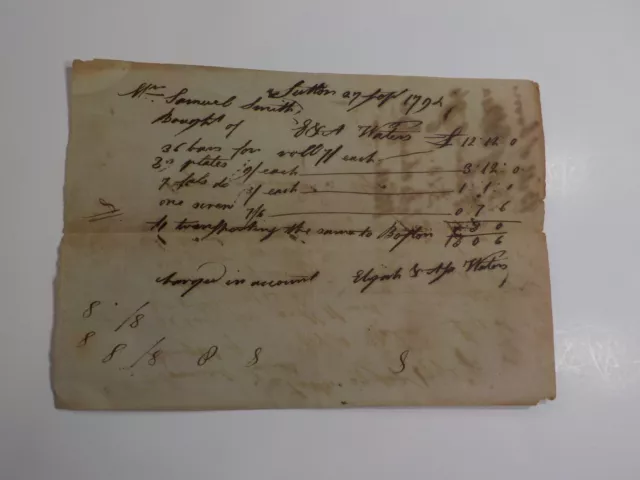 Sutton 27 Sep 179
Mr Samuel Smith
Bought of E & A Waters
36 bars for roll 7/ each £ 12 12 0
plates 9/ each 3 12 0
7 do 3/ each 1 1 0
one screw 7/6 0 7 6
to transporting the same to Boston 8 0
18 0 6
charged in account Elijah & Asa Waters
8 /8
8 8 /8 8 8 8